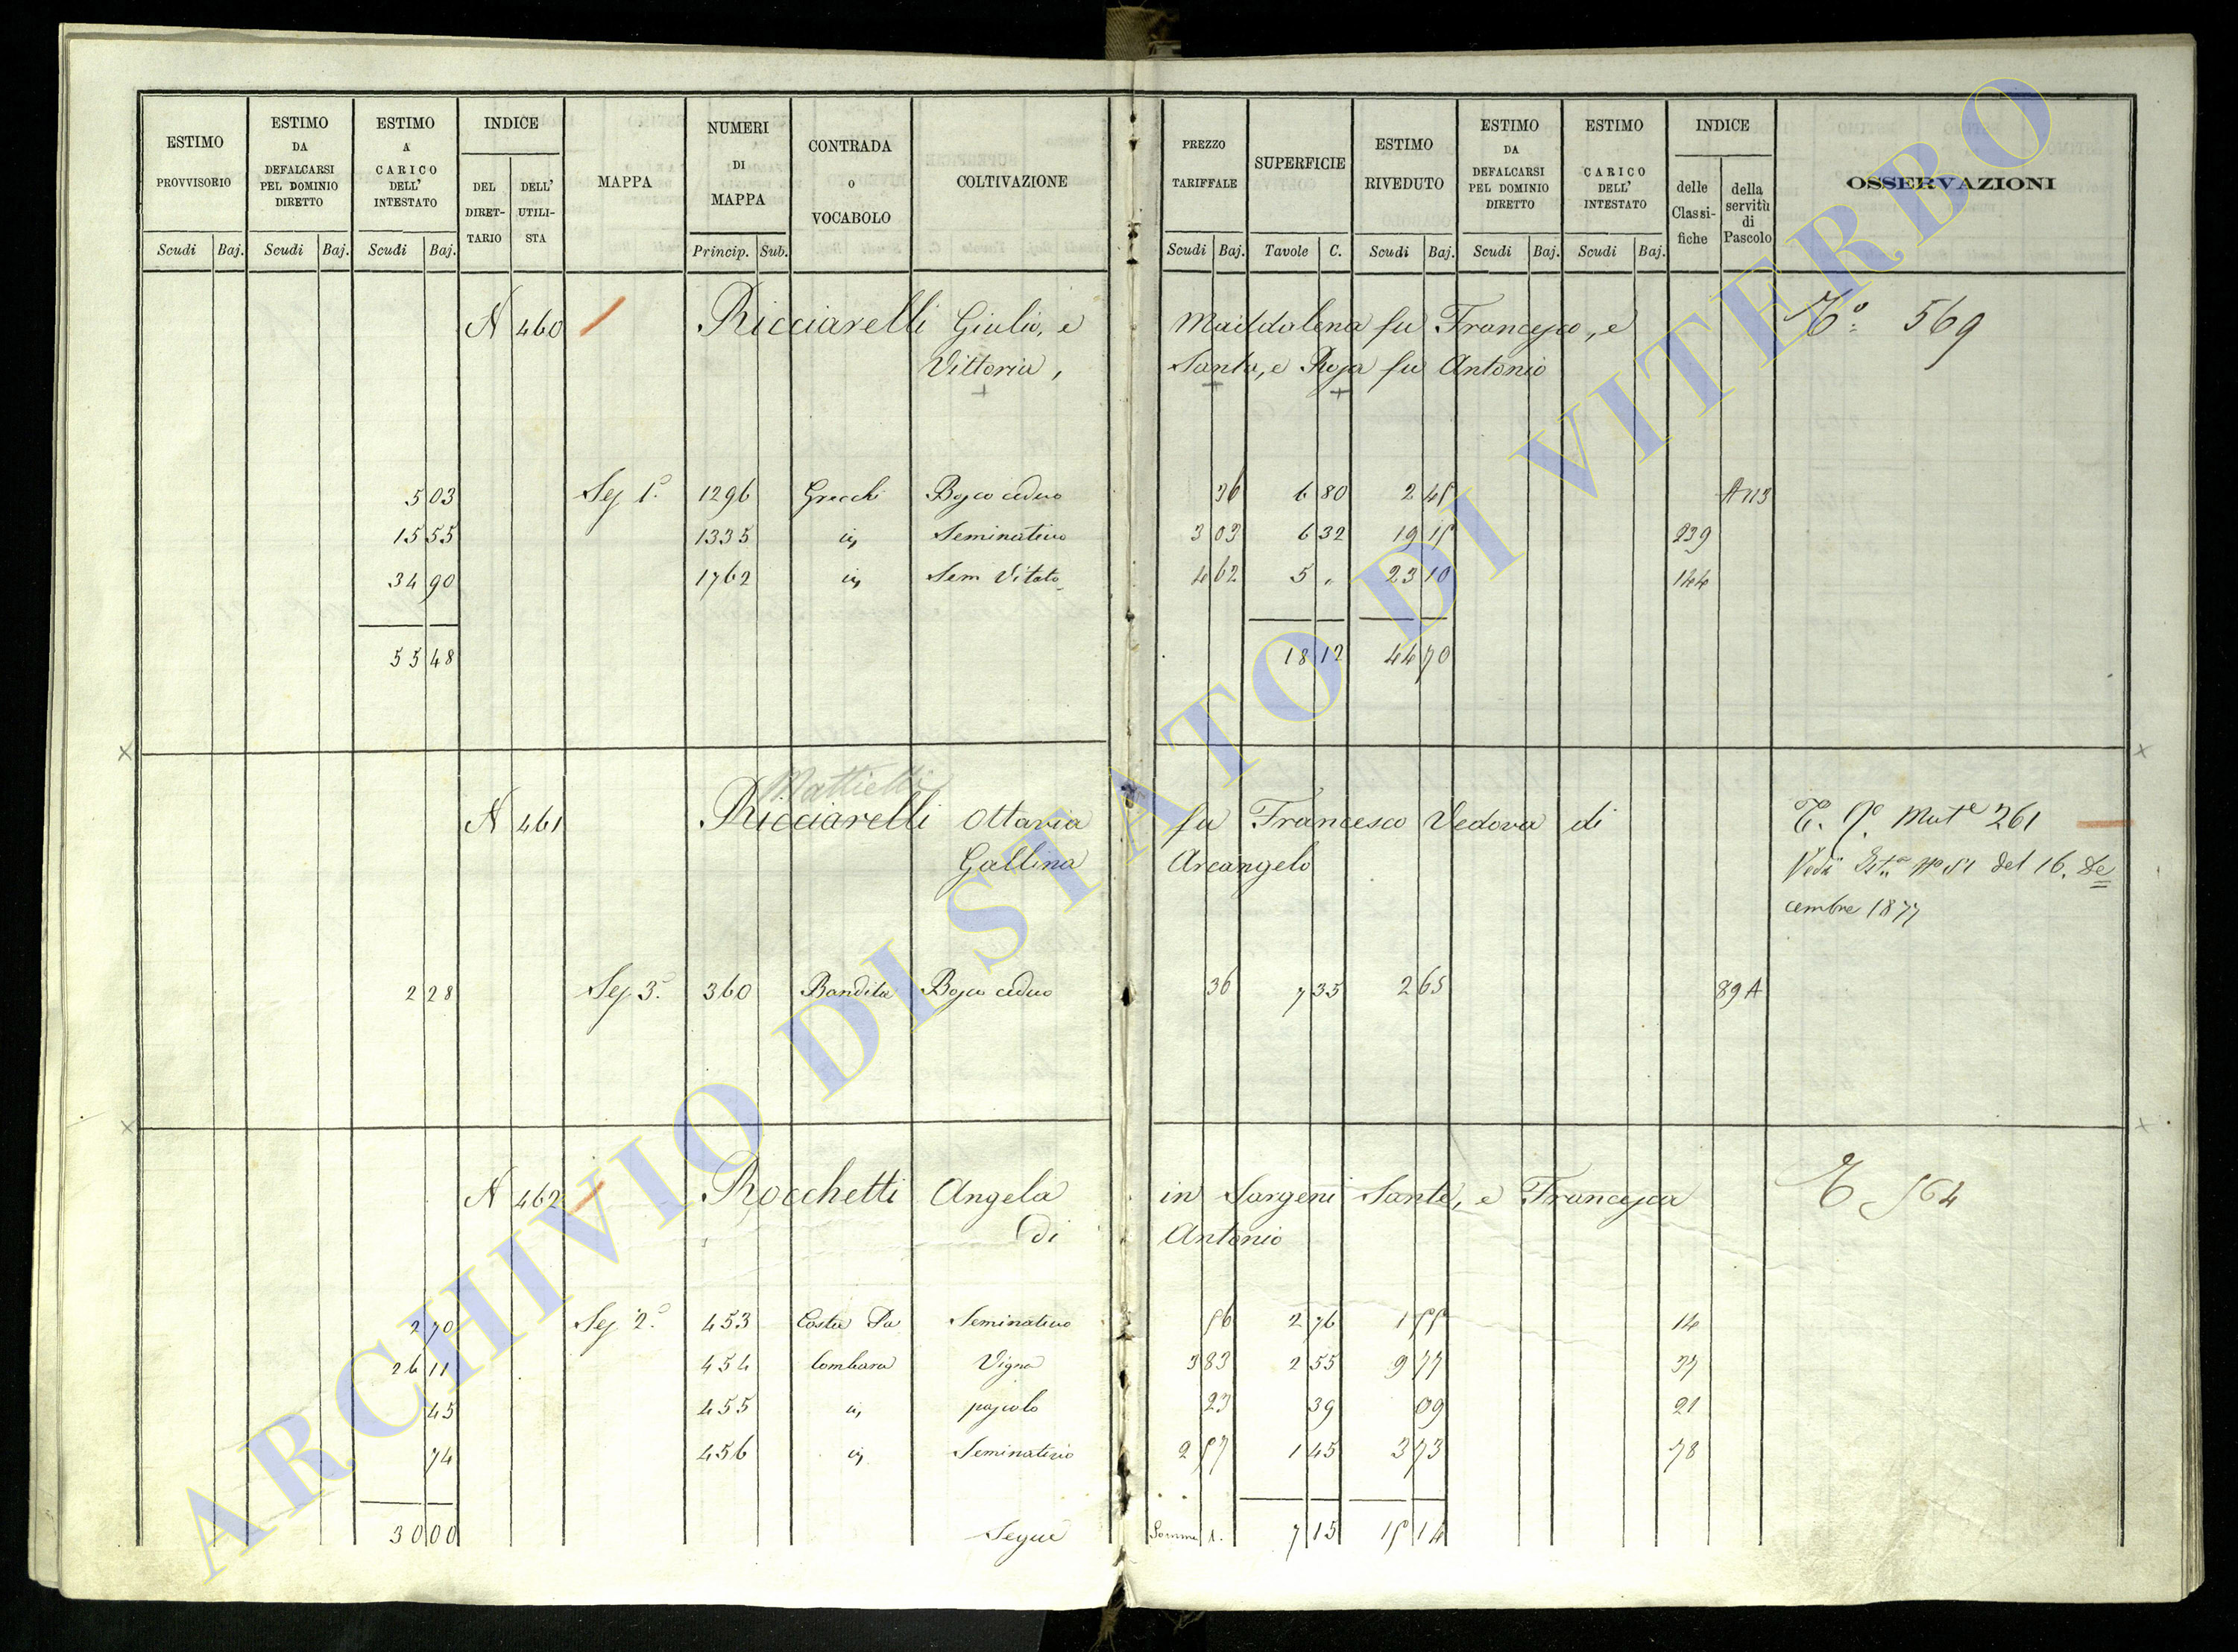 ESTIMO PROVVISORIO
ESTIMO DA DEFALCARSI PEL DOMINIO DIRETTO
ESTIMO A CARICO DELL' INTESTATO
INDICE
DEL DIRET-TARIO
DELL' UTILI-STA
MAPPA
NUMERI DI MAPPA
CONTRADA O VOCABOLO
COLTIVAZIONE
PREZZO TARIFFALE
SUPERFICIE
ESTIMO RIVEDUTO
ESTIMO DA DEFALCARSI PEL DOMINIO DIRETTO
ESTIMO CARICO DELL' INTESTATO
INDICE
delle Classi-fiche
della servitù di Pascolo
OSSERVAZIONI
Scudi Baj. Scudi Baj. Scudi Baj. Princip. Sub. Scudi Baj. Tavole C. Scudi Baj. Scudi Baj. Scudi Baj.
N 460 Ricciarelli Giulio, e Maddalena fu Francesco, e 569
Vittoria, Santa, e Rosa fu Antonio
5 03 Sez 1ª 1296 Grecchi Bosco ceduo 36 6 80 2 45 A 113
15 55 1335 Seminativo 3 03 6 32 19 15 239
34 90 1762 Sem Vitato 4 62 5 " 23 10 144
55 48 18 12 44 70
Mattietti
N 461 Ricciarelli Ottavia fu Francesco Vedova di 261
Gallina Arcangelo Vedi del 16. De
cembre 1877
2 28 Sez 3ª 360 Bandita Bosco ceduo 36 7 35 2 65 89 A
N 462 Rocchetti Angela in Sargeni Sante, e Francesca 564
di Antonio
2 70 Sez 2ª 453 Costa Pa Seminativo 56 2 76 1 55 14
26 11 454 lombara Vigna 3 83 2 55 9 77 37
45 455 pascolo 23 39 09 21
74 456 Seminativo 2 57 1 45 3 73 78
30 00 Segue Somma 7 15 15 14
ARCHIVIO DI STATO DI VITERBO